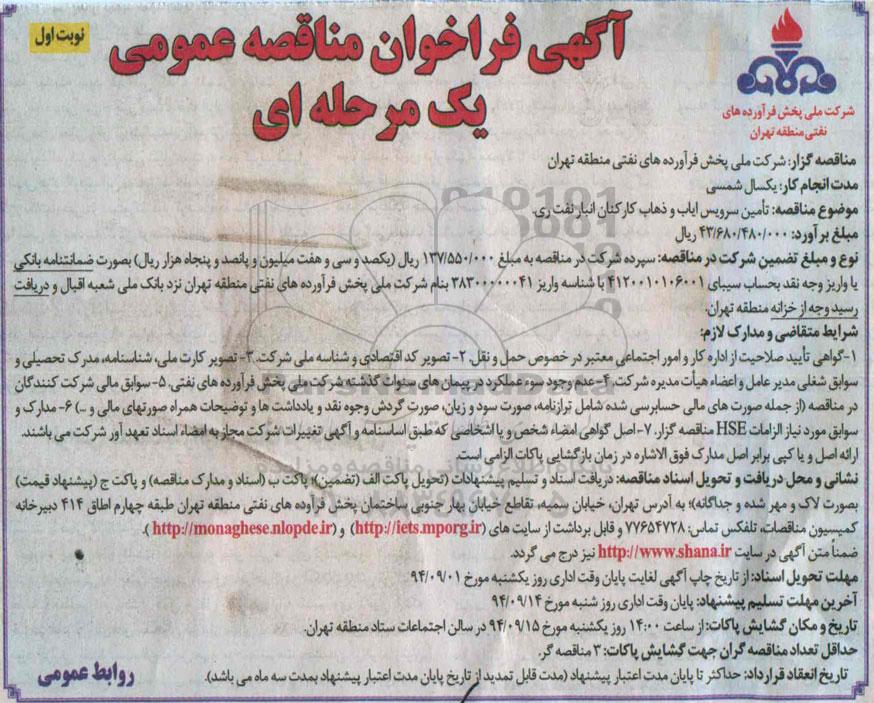 نوبت اول
آگهی فراخوان مناقصه عمومی
یک مرحله ای
شرکت ملی پخش فرآورده های
نفتی منطقه تهران
مناقصه گزار: شرکت ملی پخش فرآورده های نفتی منطقه تهران
مدت انجام کار: یکسال شمسی
موضوع مناقصه: تأمین سرویس ایاب و ذهاب کارکنان انبار نفت ری.
مبلغ برآورد: ۴۳/۶۸۰/۴۸۰/۰۰۰ ریال
نوع و مبلغ تضمین شرکت در مناقصه: سپرده شرکت در مناقصه به مبلغ ۱۳۷/۵۵۰/۰۰۰ ریال (یکصد و سی و هفت میلیون و پانصد و پنجاه هزار ریال) بصورت ضمانتنامه بانکی
یا واریز وجه نقد بحساب سیبای ۴۱۲۰۰۱۰۱۰۶۰۰۱ با شناسه واریز ۳۸۳۰۰۰۰۰۰۴۱ بنام شرکت ملی پخش فرآورده های نفتی منطقه تهران نزد بانک ملی شعبه اقبال و دریافت
رسید وجه از خزانه منطقه تهران.
شرایط متقاضی و مدارک لازم:
۱-گواهی تأیید صلاحیت از اداره کار و امور اجتماعی معتبر در خصوص حمل و نقل ۲- تصویر کد اقتصادی و شناسه ملی شرکت. ۳- تصویر کارت ملی، شناسنامه، مدرک تحصیلی و
سوابق شغلی مدیر عامل و اعضاء هیأت مدیره شرکت. ۴-عدم وجود سوء عملکرد در پیمان های سنوات گذشته شرکت ملی پخش فرآورده های نفتی. ۵-سوابق مالی شرکت کنندگان
در مناقصه (از جمله صورت های مالی حسابرسی شده شامل ترازنامه، صورت سود و زیان، صورت گردش وجوه نقد و یادداشت ها و توضیحات همراه صورتهای مالی و ...) ۶- مدارک و
سوابق مورد نیاز الزامات HSE مناقصه گزار. ۷-اصل گواهی امضاء شخص و یا اشخاصی که طبق اساسنامه و آگهی تغییرات شرکت مجاز به امضاء اسناد تعهد آور شرکت می باشند.
ارائه اصل و یا کپی برابر اصل مدارک فوق الاشاره در زمان بازگشایی پاکات الزامی است.
نشانی و محل دریافت و تحویل اسناد مناقصه: دریافت اسناد و تسلیم پیشنهادات (تحویل پاکت الف (تضمین)؛ پاکت ب (اسناد و مدارک مناقصه) و پاکت ج (پیشنهاد قیمت)
بصورت لاک و مهر شده و جداگانه)؛ به آدرس تهران، خیابان سمیه، تقاطع خیابان بهار جنوبی ساختمان پخش فرآورده های نفتی منطقه تهران طبقه چهارم اطاق ۴۱۴ دبیرخانه
کمیسیون مناقصات، تلفکس تماس: ۷۷۶۵۴۷۲۸ و قابل برداشت از سایت های (http://iets.mporg.ir) و (http://monaghese.nlopde.ir ).
ضمناً متن آگهی در سایت http://www.shana.ir نیز درج می گردد.
مهلت تحویل اسناد: از تاریخ چاپ آگهی لغایت پایان وقت اداری روز یکشنبه مورخ ۹۴/۰۹/۰۱
آخرین مهلت تسلیم پیشنهاد: پایان وقت اداری روز شنبه مورخ ۹۴/۰۹/۱۴
تاریخ و مکان گشایش پاکات: از ساعت ۱۴:۰۰ روز یکشنبه مورخ ۹۴/۰۹/۱۵ در سالن اجتماعات ستاد منطقه تهران.
حداقل تعداد مناقصه گران جهت گشایش پاکات: ۳ مناقصه گر.
تاریخ انعقاد قرارداد: حداکثر تا پایان مدت اعتبار پیشنهاد (مدت قابل تمدید از تاریخ پایان مدت اعتبار پیشنهاد بمدت سه ماه می باشد).
روابط عمومی